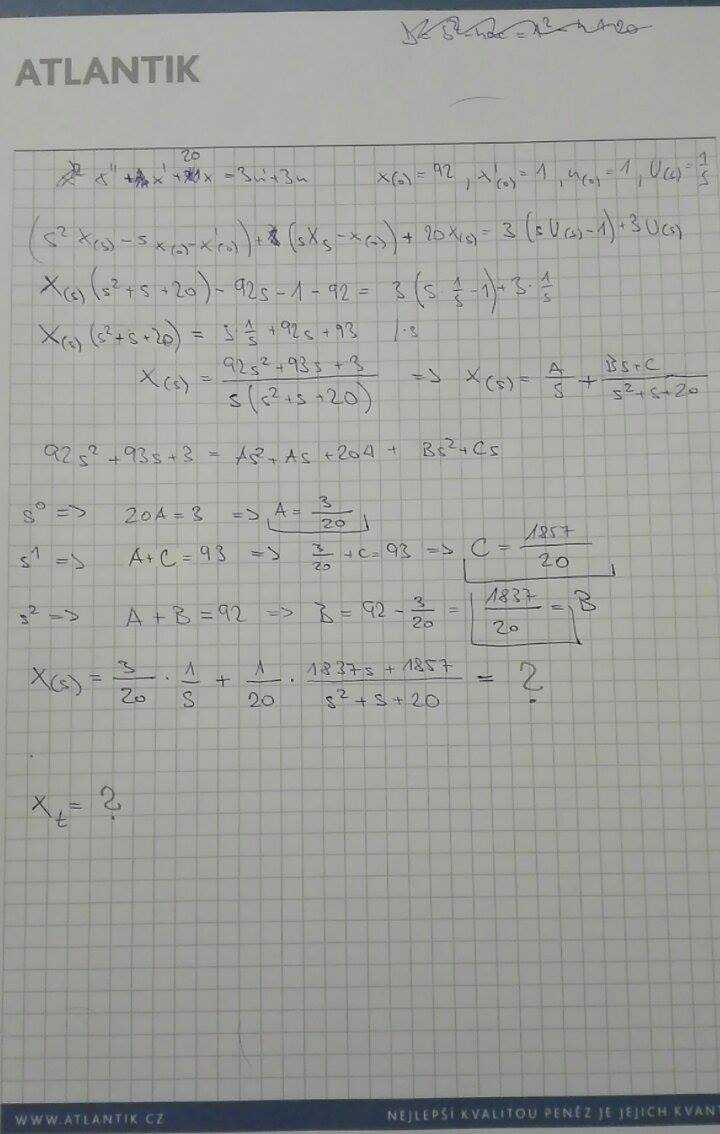 ATLANTIK
x'' + x' + 20x = 3u' + 3u   x(0) = 92, x'(0) = 1, u(0) = 1, U(s) = 1/s
(s² X(s) - s x(0) - x'(0)) + (sXs - x(0)) + 20X(s) = 3(sU(s) - 1) + 3U(s)
X(s)(s² + s + 20) - 92s - 1 - 92 = 3(s · 1/s - 1) + 3 · 1/s
X(s)(s² + s + 20) = 3 · 1/s + 92s + 93   / · s
X(s) = (92s² + 93s + 3)/(s(s² + s + 20)) => X(s) = A/s + (Bs + C)/(s² + s + 20)
92s² + 93s + 3 = As² + As + 20A + Bs² + Cs
s⁰ => 20A = 3 => A = 3/20
s¹ => A + C = 93 => 3/20 + C = 93 => C = 1857/20
s² => A + B = 92 => B = 92 - 3/20 = 1837/20 = B
X(s) = 3/20 · 1/s + 1/20 · (1837s + 1857)/(s² + s + 20) = ?
Xt = ?
WWW.ATLANTIK.CZ   NEJLEPŠÍ KVALITOU PENĚZ JE JEJICH KVANT